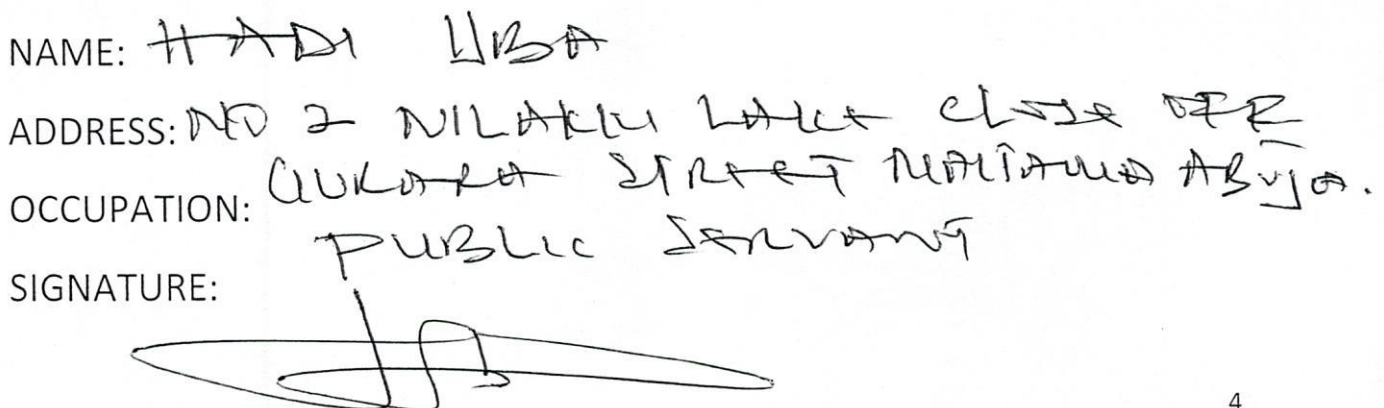 NAME: HADI UBA
ADDRESS: NO 2 NILAKKU LAKE close OFF
STREET MAITAMA ABUJA.
OCCUPATION: PUBLIC SERVANT
SIGNATURE:
4